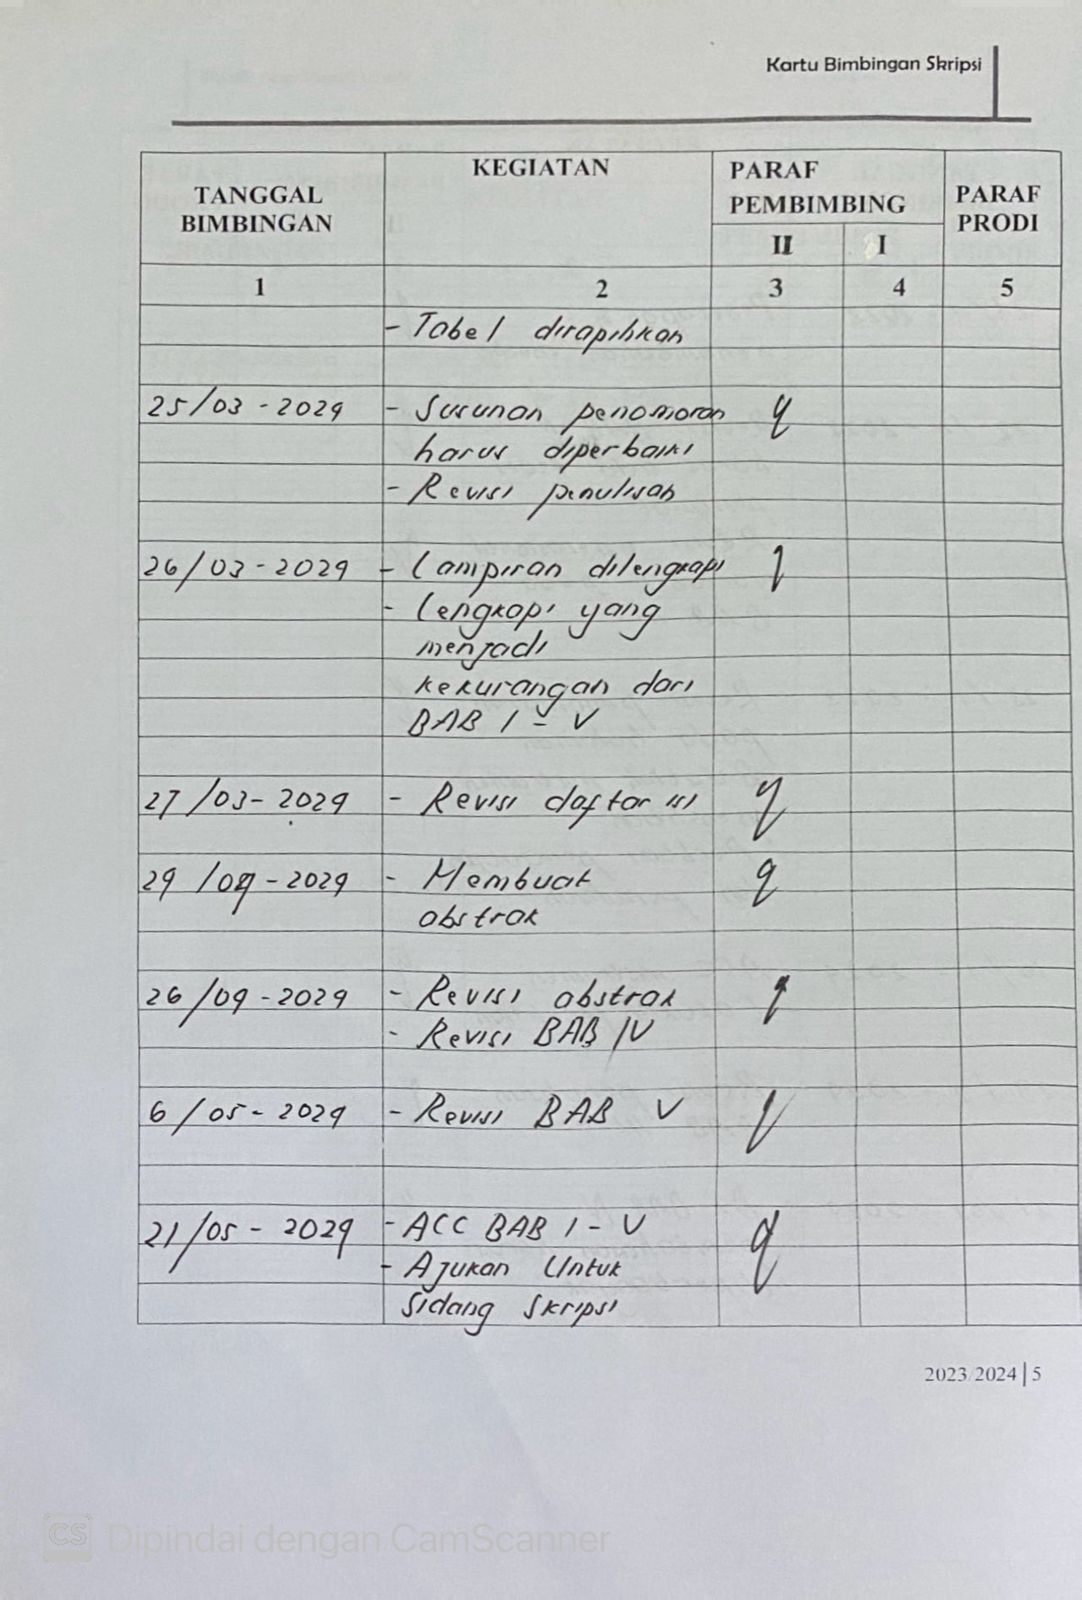 Kartu Bimbingan Skripsi
TANGGAL BIMBINGAN KEGIATAN PARAF PEMBIMBING PARAF PRODI
II I
1 2 3 4 5
- Tabel dirapihkan
25/03 - 2024 - Susunan penomoran
harus diperbaiki
- Revisi penulisan
26/03 - 2024 - Lampiran dilengkapi
- Lengkapi yang
menjadi
kekurangan dari
BAB I - V
27/03 - 2024 - Revisi daftar isi
24/04 - 2024 - Membuat
abstrak
26/04 - 2024 - Revisi abstrak
- Revisi BAB IV
6/05 - 2024 - Revisi BAB V
21/05 - 2024 - ACC BAB I - V
- Ajukan Untuk
Sidang Skripsi
2023/2024 | 5
CS Dipindai dengan CamScanner